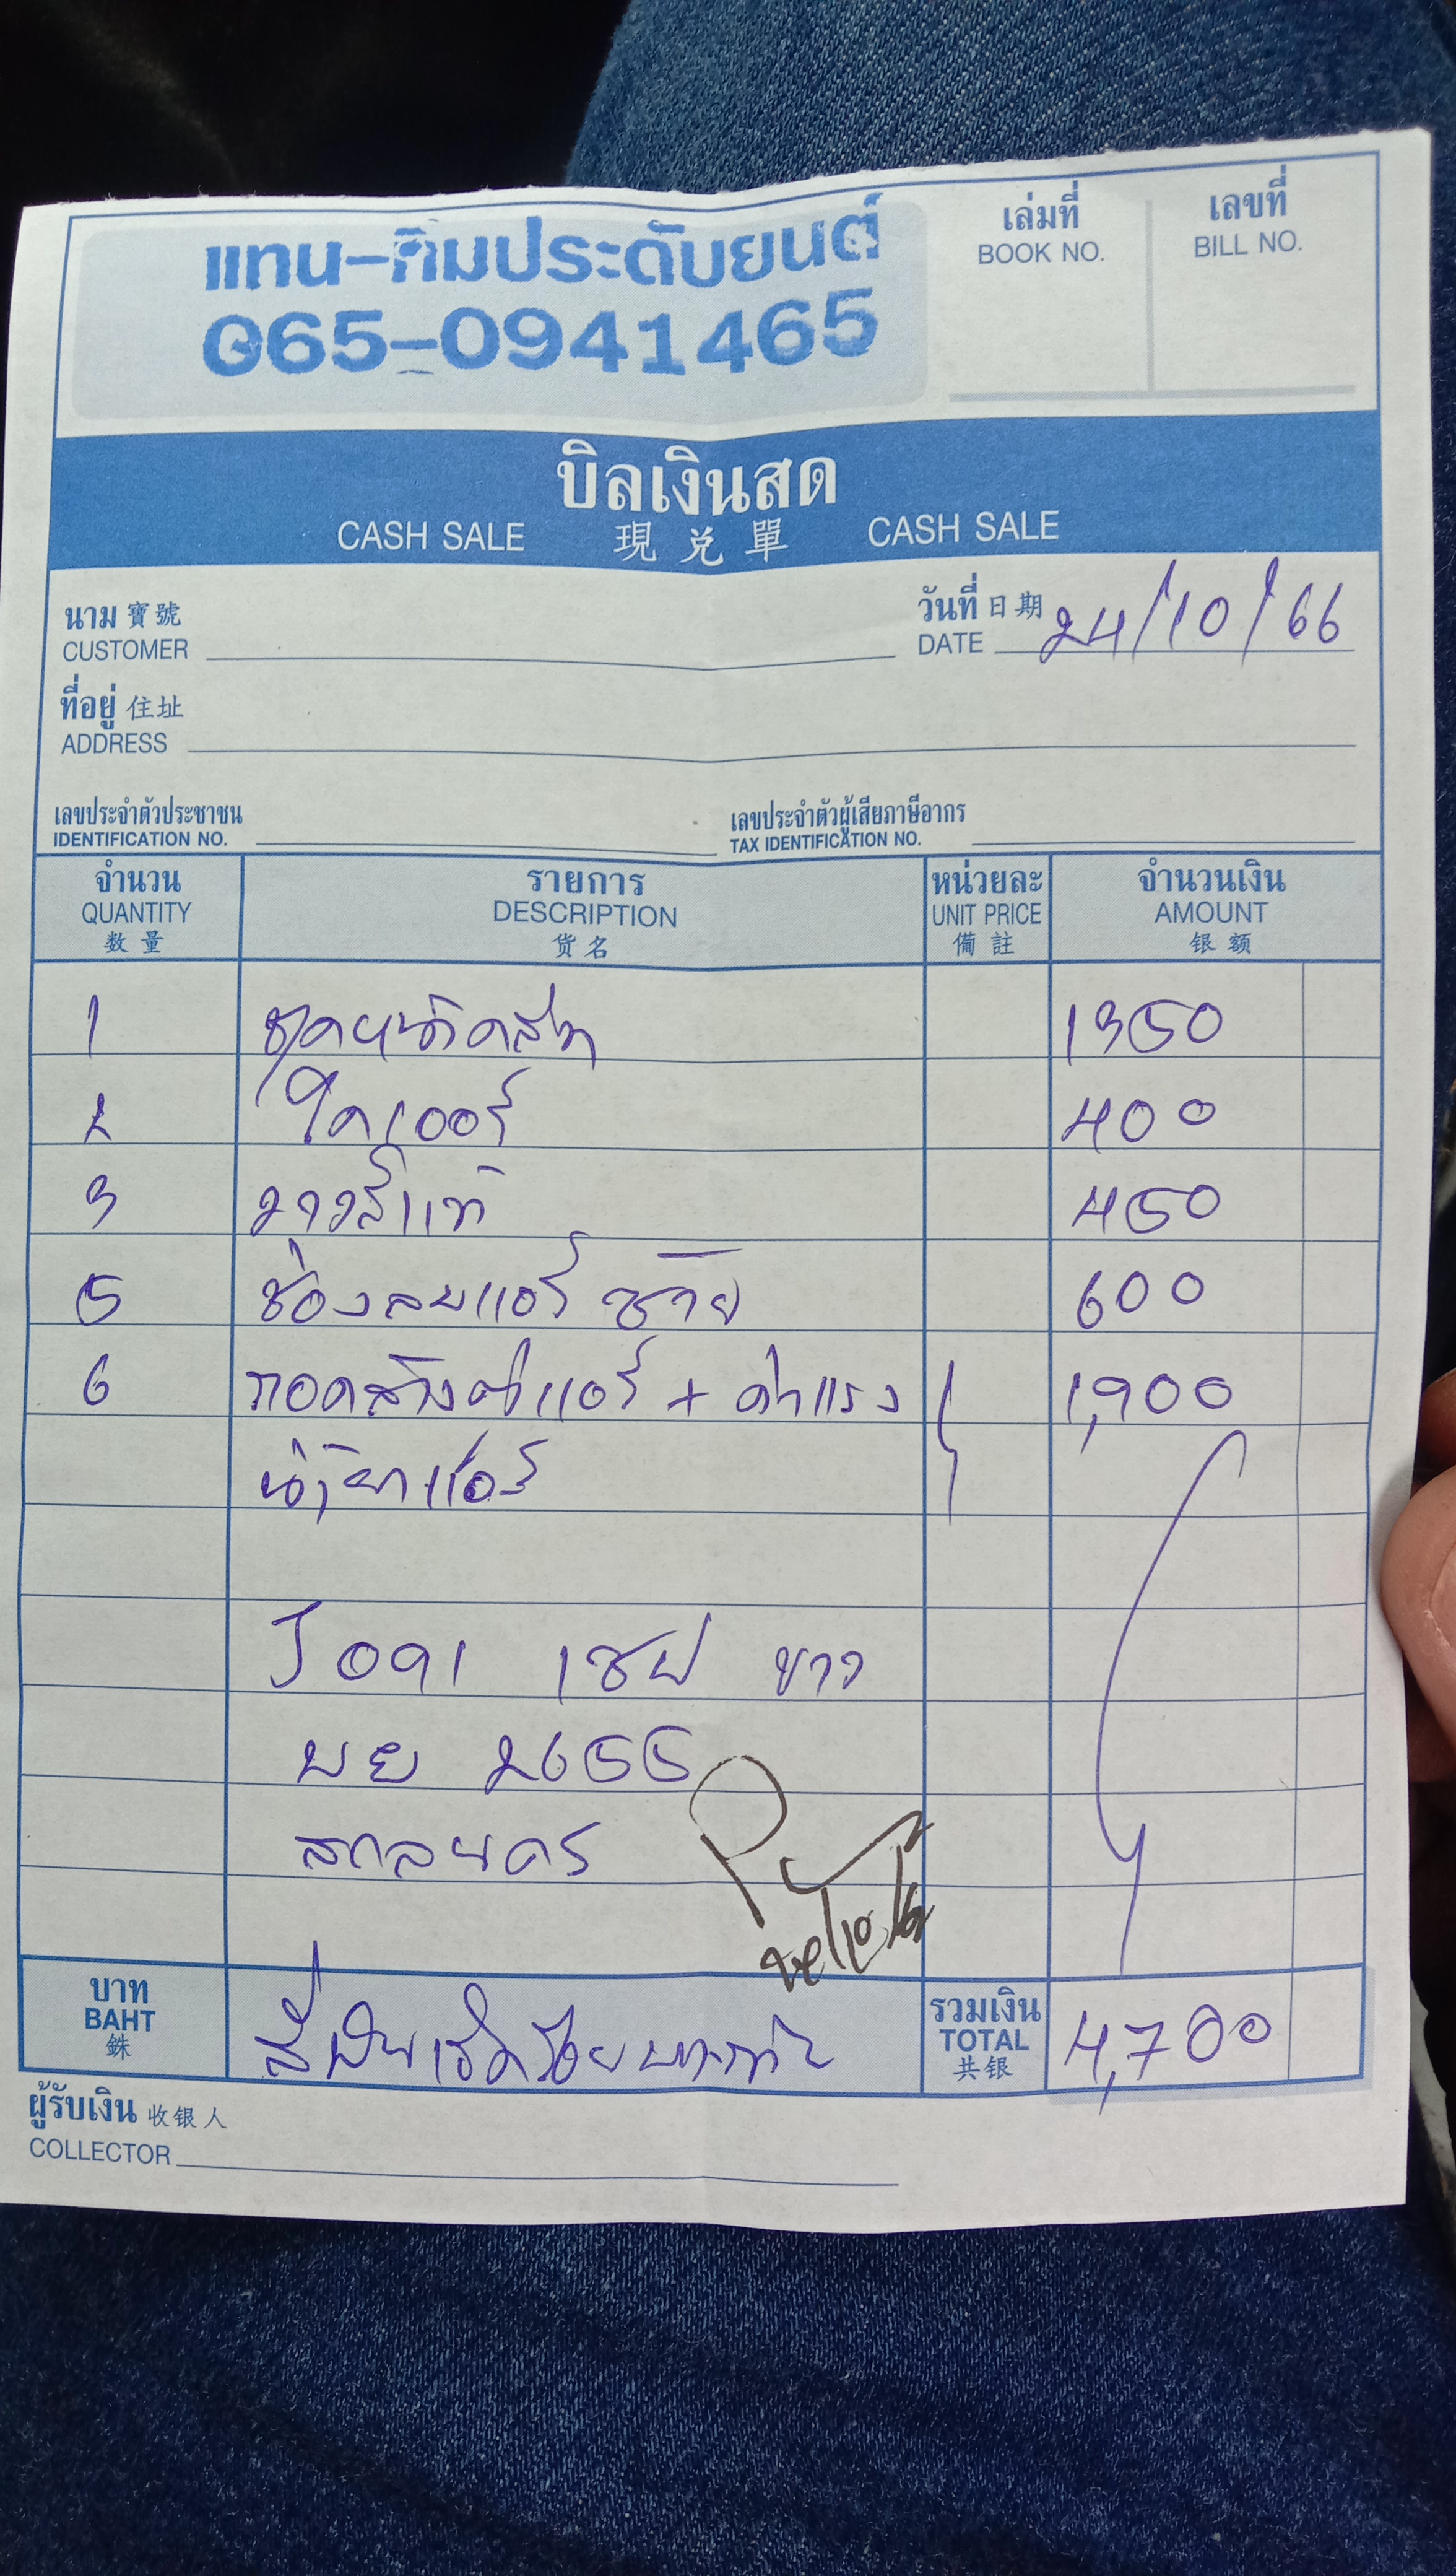 แทน-คิมประดับยนต์
065-0941465
เล่มที่
BOOK NO.
เลขที่
BILL NO.
บิลเงินสด
CASH SALE 現兑單 CASH SALE
นาม 寶號
CUSTOMER
วันที่ 日期
DATE 24/10/66
ที่อยู่ 住址
ADDRESS
เลขประจำตัวประชาชน
IDENTIFICATION NO.
เลขประจำตัวผู้เสียภาษีอากร
TAX IDENTIFICATION NO.
จำนวน รายการ หน่วยละ จำนวนเงิน
QUANTITY DESCRIPTION UNIT PRICE AMOUNT
数量 货名 備註 银额
1 ชุดหน้าคลัท 1350
2 ไดเออร์ 400
3 วาวล์แท้ 450
5 ช่องลมแอร์ ซ้าย 600
6 ถอดล้างตู้แอร์ + ค่าแรง 1,900
น้ำยาแอร์
J 091 เชฟ ขาว
บย 2655
สกลนคร
บาท
BAHT
銖
สี่พันเจ็ดร้อยบาทถ้วน
รวมเงิน
TOTAL
共银
4,700
ผู้รับเงิน 收银人
COLLECTOR